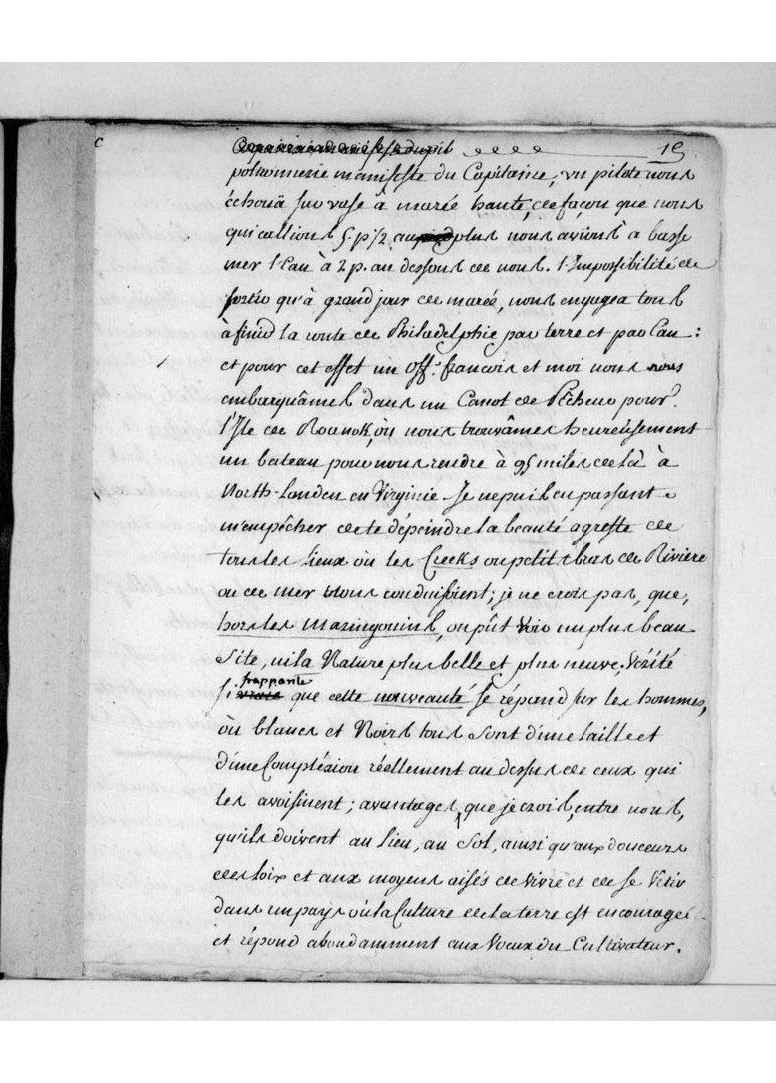 15
poltronnerie manifeste du Capitaine, un pilote nous
échouä sur vase à marée haute, de façon que nous
qui callions 5. p. 1/2 au plus nous avions à basse
mer l'Eau à 2 p. au dessous de nous. l'Impossibilité de
sortir qu'à grand jour de marée, nous engagea tous
à finir la route de Philadelphie par terre et par Eau :
et pour cet effet un Off.r francois et moi nous nous
embarquâmes dans un Canot de Pêcheur pour
l'Isle de Rounok, où nous trouvâmes heureusement
un bateau pour nous rendre à 95 miles de là à
North-Landen en Virginie. Je ne puis en passant
m'empêcher de te dépeindre la beauté agreste de
tous les lieux où les Creeks ou petits bras de Riviere
ou de mer nous conduisoient ; je ne crois pas, que,
hors les maringouins, on pût voir un plus beau
Site, ni la Nature plus belle et plus neuve. Vérité
frappante
si que cette nouveauté se répand sur les hommes,
où blancs et Noirs tous sont d'une taille et
d'une Compléxion réellement au dessus de ceux qui
les avoisinent ; avantages, que je crois, entre nous,
qu'ils doivent au lieu, au Sol, ainsi qu'aux douceurs
des loix et aux moyens aisés de vivre et de se Vétir
dans un pays où la Culture de la terre est encouragée
et répond abondamment aux Voeux du Cultivateur.